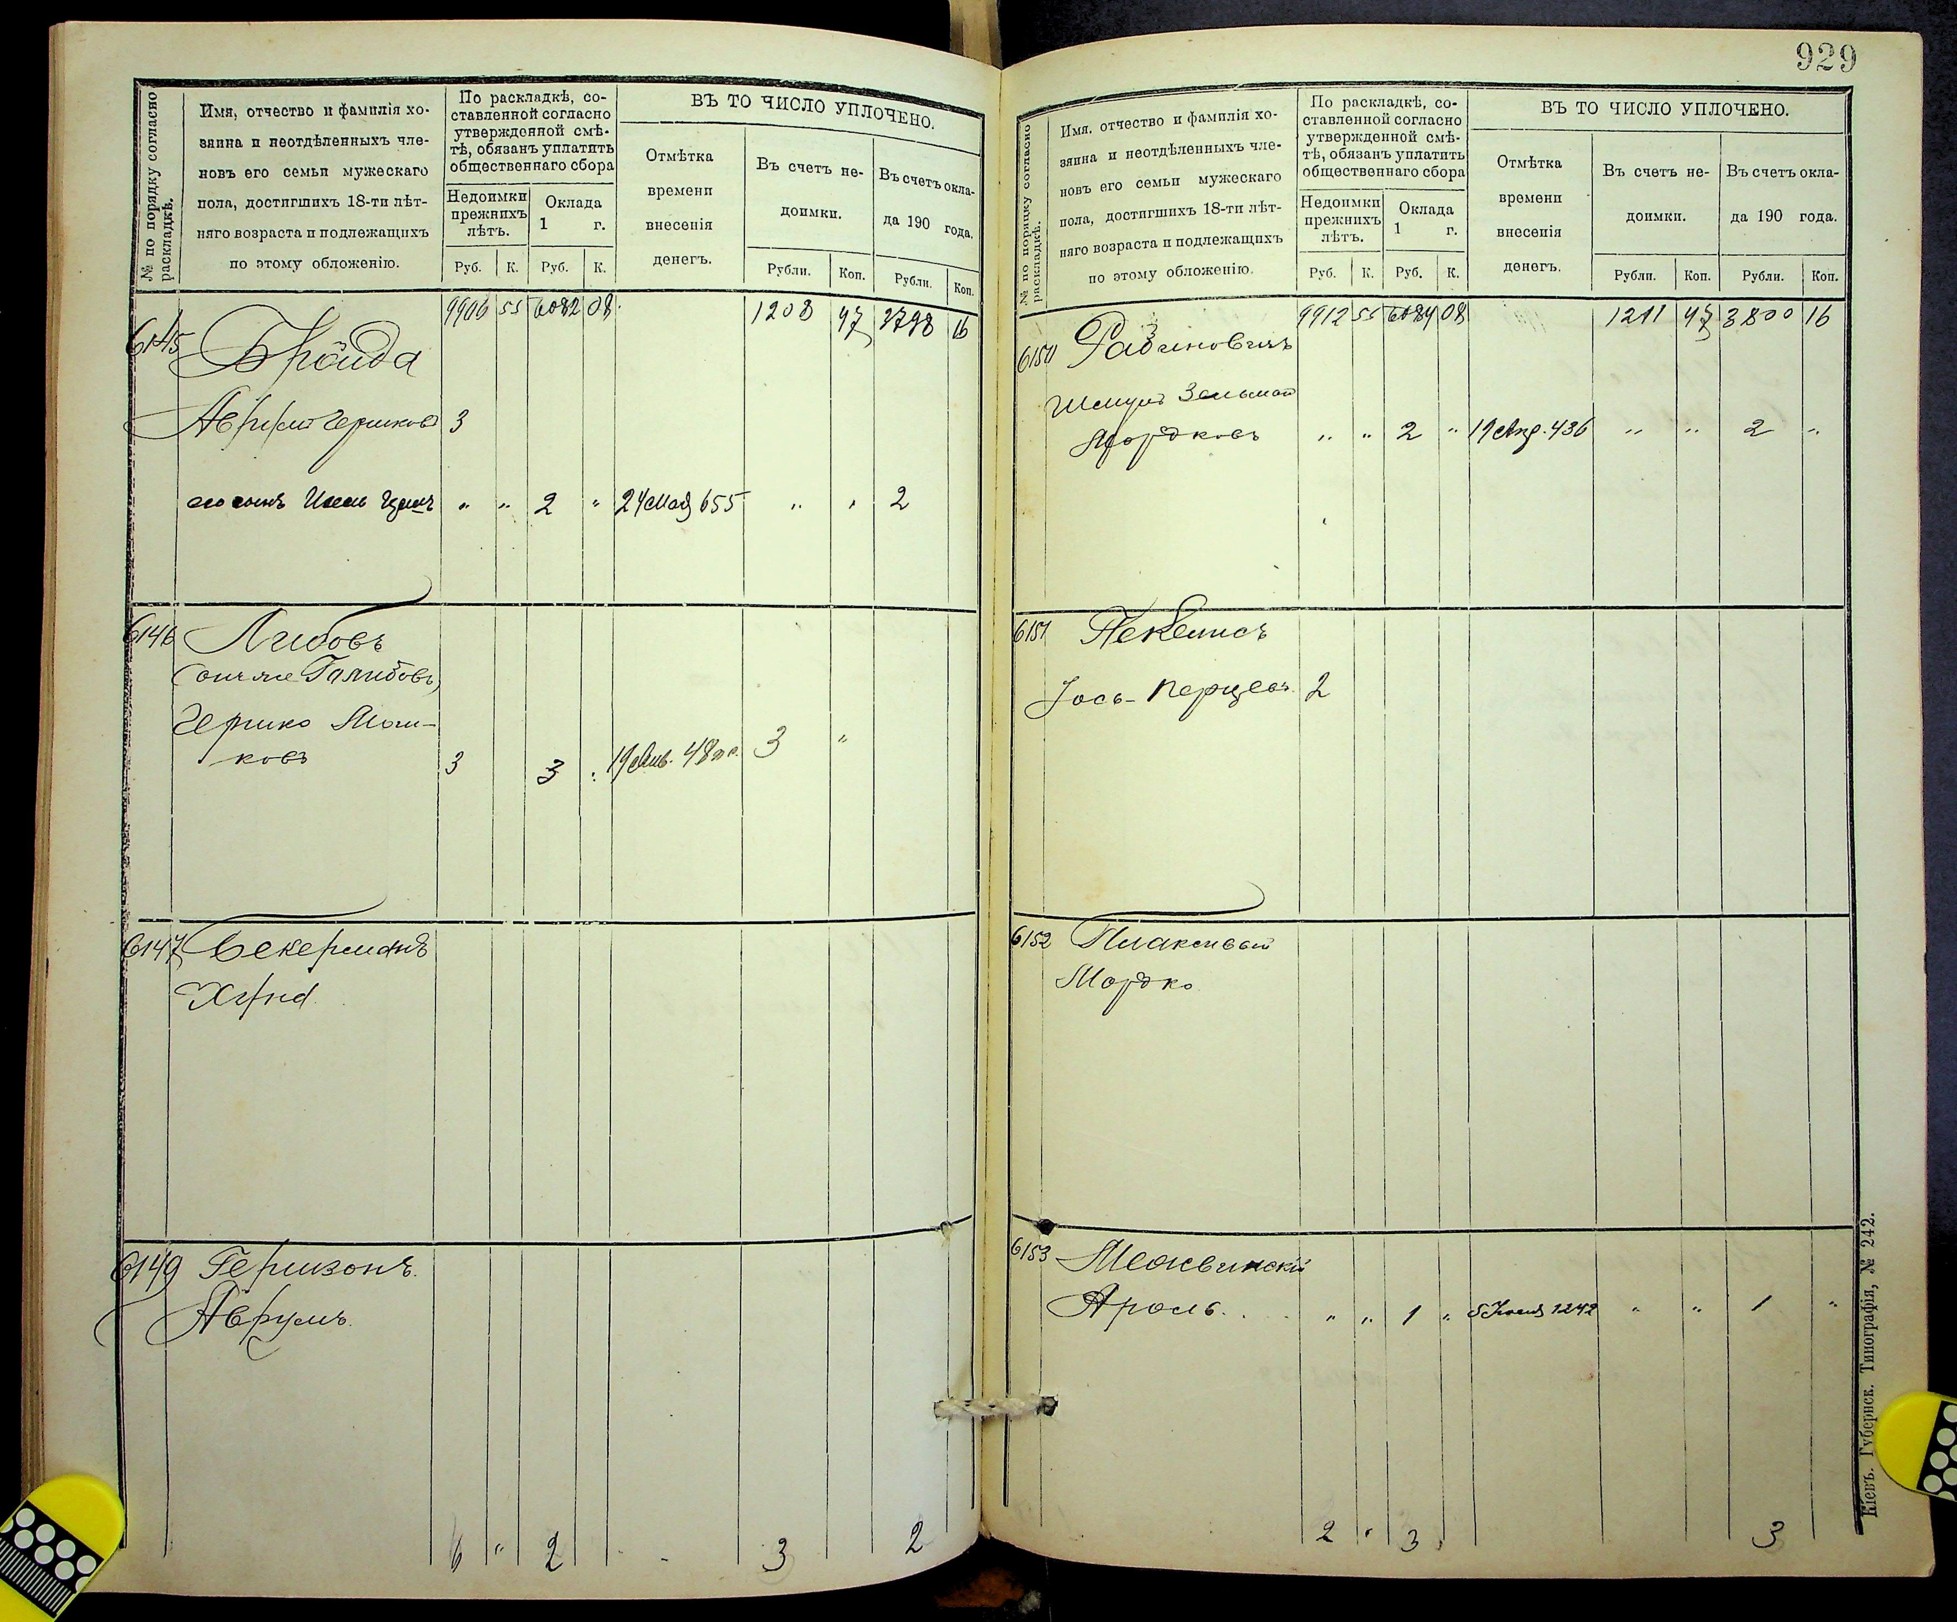 929
№ по порядку согласно раскладкѣ.
Имя, отчество и фамилія хо-
зяина и неотдѣленныхъ чле-
новъ его семьи мужескаго
пола, достигшихъ 18-ти лѣт-
няго возраста и подлежащихъ
по этому обложенію.
По раскладкѣ, со-
ставленной согласно
утвержденной смѣ-
тѣ, обязанъ уплатить
общественнаго сбора
Недоимки
прежнихъ
лѣтъ.
Оклада
1 г.
Руб. К. Руб. К.
ВЪ ТО ЧИСЛО УПЛОЧЕНО.
Отмѣтка
времени
внесенія
денегъ.
Въ счетъ не-
доимки.
Рубли. Коп.
Въ счетъ окла-
да 190 года.
Рубли. Коп.
9906 55 6082 08 1208 47 3798 16
6145 Бройда
3
его сынъ " " 2 " 24 Мая 655 " " 2
6146 Либовъ
(онъ же Галибовъ)
Гершко Мош-
ковъ 3 3 " 19 Янв. 48 3 "
6147 Бекерманъ
6149 Гершзонъ
Аврумъ.
6 " 2 3 2
№ по порядку согласно раскладкѣ.
Имя, отчество и фамилія хо-
зяина и неотдѣленныхъ чле-
новъ его семьи мужескаго
пола, достигшихъ 18-ти лѣт-
няго возраста и подлежащихъ
по этому обложенію.
По раскладкѣ, со-
ставленной согласно
утвержденной смѣ-
тѣ, обязанъ уплатить
общественнаго сбора
Недоимки
прежнихъ
лѣтъ.
Оклада
1 г.
Руб. К. Руб. К.
ВЪ ТО ЧИСЛО УПЛОЧЕНО.
Отмѣтка
времени
внесенія
денегъ.
Въ счетъ не-
доимки.
Рубли. Коп.
Въ счетъ окла-
да 190 года.
Рубли. Коп.
9912 55 6084 08 1211 47 3800 16
6150 Рабиновичъ
Шмулъ Зельман
Мордковъ " " 2 " 19 Апр. 436 " " 2 "
6151
Іось-Перцевъ 2
6152 Плаксивый
Мордко
6153 Межвинскій
Ароль. " " 1 " 5 Іюня 1242 " " 1 "
2 " 3 3
Кіевъ. Губернск. Типографія, № 242.